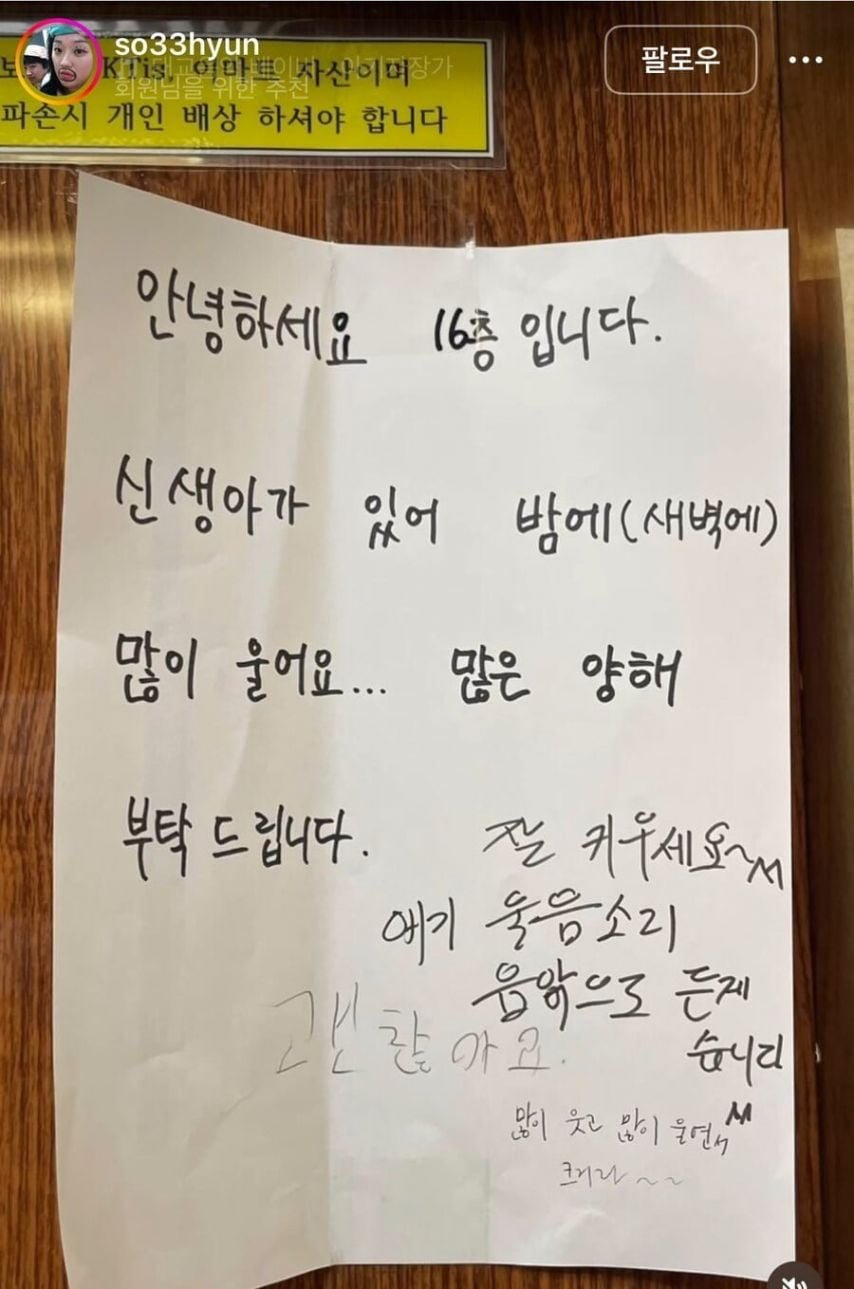 so33hyun
팔로우
회원님을 위한 추천
KTis, 이마트 자산이며
파손시 개인 배상 하셔야 합니다
안녕하세요 16층 입니다.
신생아가 있어 밤에(새벽에)
많이 울어요... 많은 양해
부탁 드립니다.
잘 키우세요~
애기 울음소리
음악으로 듣게
습니다
괜찮아요.
많이 웃고 많이 울면서
크거라~~